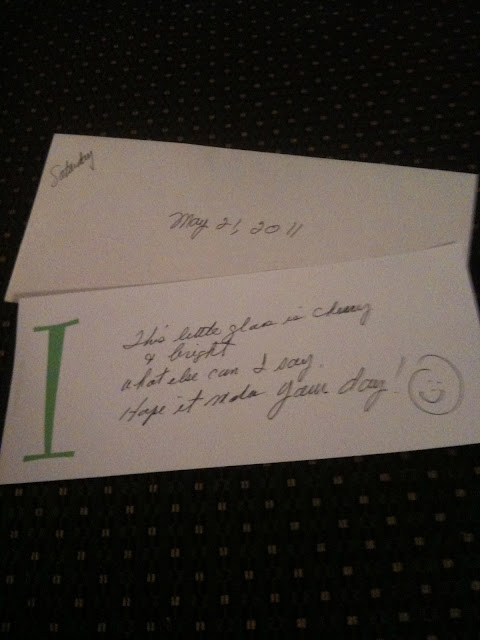 Saturday
May 21, 2011
I
This little glass is cheery
& bright
what else can I say.
Hope it makes your day!